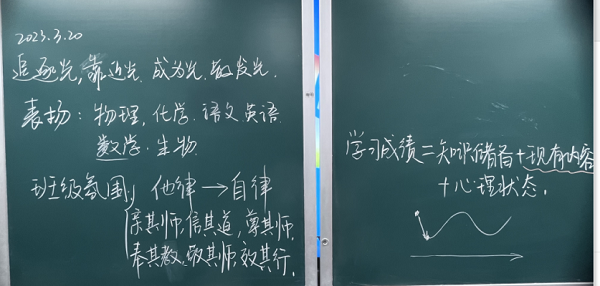 2023.3.20
追逐光,靠近光.成为光.散发光.
表扬:物理,化学.语文.英语.
数学.生物.
班级氛围:他律→自律
亲其师,信其道,尊其师,
奉其教,敬其师,效其行.
学习成绩=知识储备+现有内容
+心理状态.